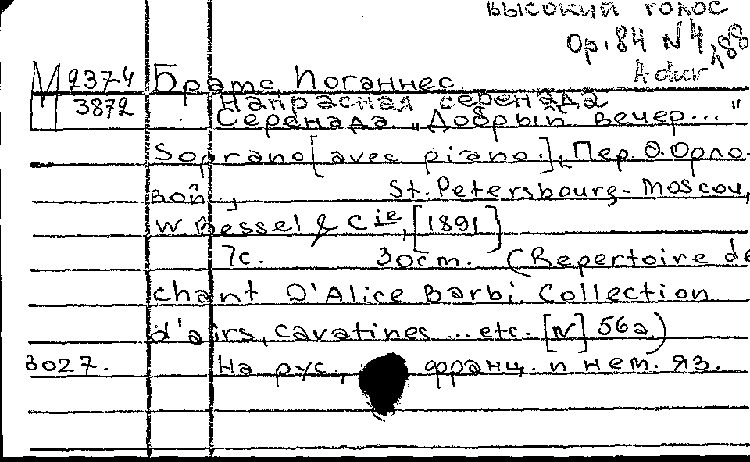 высокий голос
Op. 84 N 4, 88
A dur
М 2374 Брамс, Иоганнес
П 3872 Напрасная серенада
Серенада „Добрый вечер..."
Soprano [avec piano.], Пер. О. Орло-
вой.,
St. Petersbourg- Moscou,
W. Bessel & Cie, [1891]
7с. 30cm. (Repertoire de
chant D'Alice Barbi. Collection
d'airs, cavatines ... etc. [N] 56a)
3027. На рус., франц. и нем. яз.